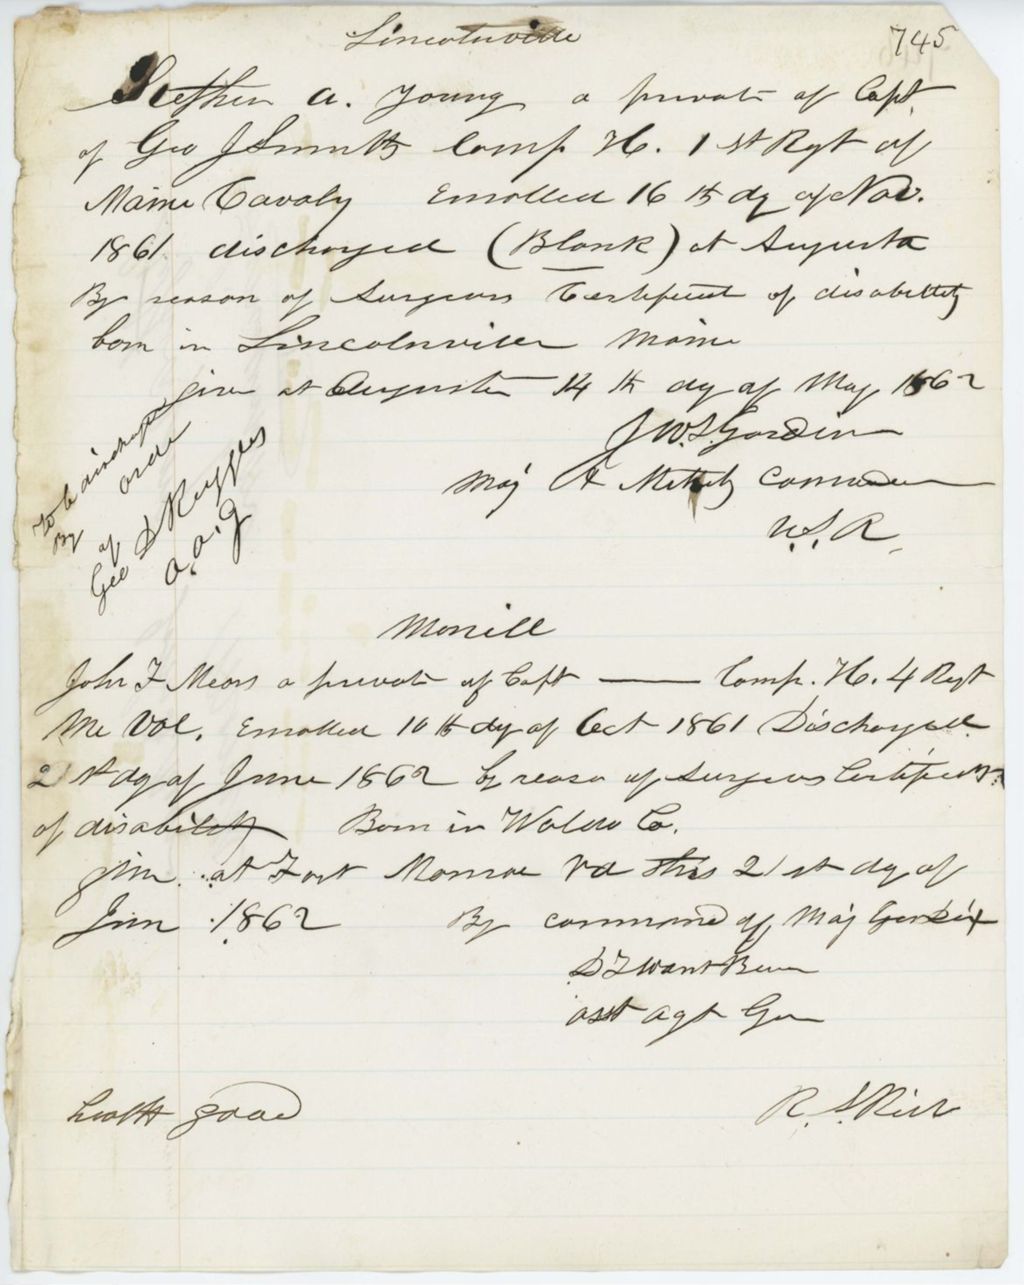 Lincolnville
745
Stephen A. Young a private of Capt.
of Geo J Smith Comp H. 1 st Rgt of
Maine Cavaly Enrolled 16 th dy of Nov.
1861 discharged (Blank) at Augusta
By reason of Surgeons Certificat of disability
born in Lincolnville Maine
give at Augusta 14 th dy of May 1862
J W T Gardiner
Maj Comman
U.S.A.
To be discharged
By order
of
Geo D Ruggles
A.A.G
Morrill
John F Mears a private of Capt —— Comp. H. 4 Regt
Me Vol. Enrolled 10 th dy of Oct 1861 Discharged
21 st dy of June 1862 by reason of Surgeons Certificate
of disability Born in Waldo Co.
give at Fort Monroe Va this 21 st dy of
June 1862 By command of Maj Gen Dix
D T Van Buren
asst Agt Gen
health good
R. S. Rich